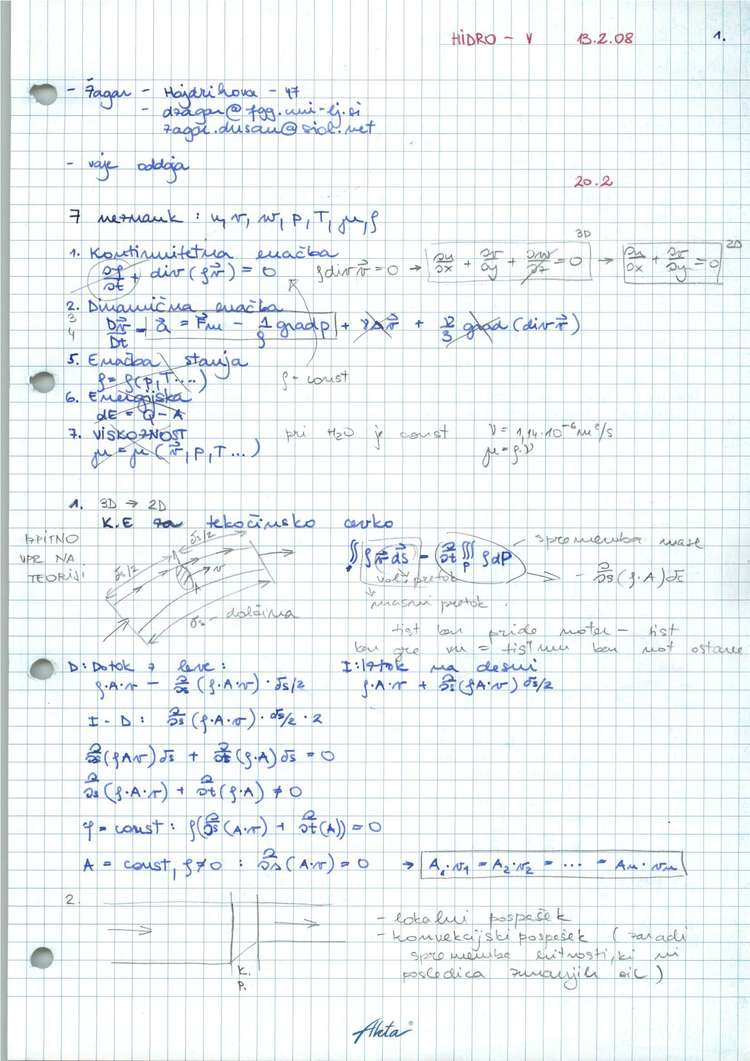 HIDRO - V 13.2.08 1.
- Žagar - Hajdrihova - 47
- dzagar@fgg.uni-lj.si
zagar.dusan@siol.net
- vaje oddaja
20.2
7 neznank : u, v, w, p, T, μ, ρ
1. Kontinuitetna enačba
∂ρ/∂t + div(ρv⃗) = 0 ρ div v⃗ = 0 → ∂u/∂x + ∂v/∂y + ∂w/∂z = 0 3D → ∂u/∂x + ∂v/∂y = 0 2D
2. Dinamična enačba
3
4 Dv⃗/Dt = a⃗ = F⃗m - 1/ρ grad p + νΔv⃗ + ν/3 grad (div v⃗)
5. Enačba stanja
ρ = ρ(p, T....) ρ - const
6. Energijska
dE = Q - A
7. VISKOZNOST pri H2O je const ν = 1,14·10⁻⁶ m²/s
μ = μ(v⃗, p, T...) μ = ρ·ν
1. 3D → 2D
K.E za tekočinsko cevko
BRITNO
VPR NA
TEORIJI
δs/2 δs/2 v
δs - dolžina
∬ ρ v⃗ ds⃗ = ∂/∂t ∭ ρ dP - sprememba mase
vol. pretok → - ∂/∂s (ρ·A) δs
masni pretok.
tist kar pride noter - tist
kar gre vn = tist mu kar not ostane
D: Dotok z leve: I: Iztok na desni
ρ·A·v - ∂/∂s (ρ·A·v)·δs/2 ρ·A·v + ∂/∂s (ρA·v) δs/2
I - D : ∂/∂s (ρ·A·v)·δs/2·2
∂/∂s (ρAv) δs + ∂/∂t (ρ·A) δs = 0
∂/∂s (ρ·A·v) + ∂/∂t (ρ·A) ≠ 0
ρ = const : ρ(∂/∂s (A·v) + ∂/∂t (A)) = 0
A = const, ρ ≠ 0 : ∂/∂s (A·v) = 0 → A₁·v₁ = A₂·v₂ = ... = An·vn
2.
K.
P.
- lokalni pospešek
- konvekcijski pospešek (zaradi
spremembe hitrosti, ki ni
posledica zunanjih sil)
Akta